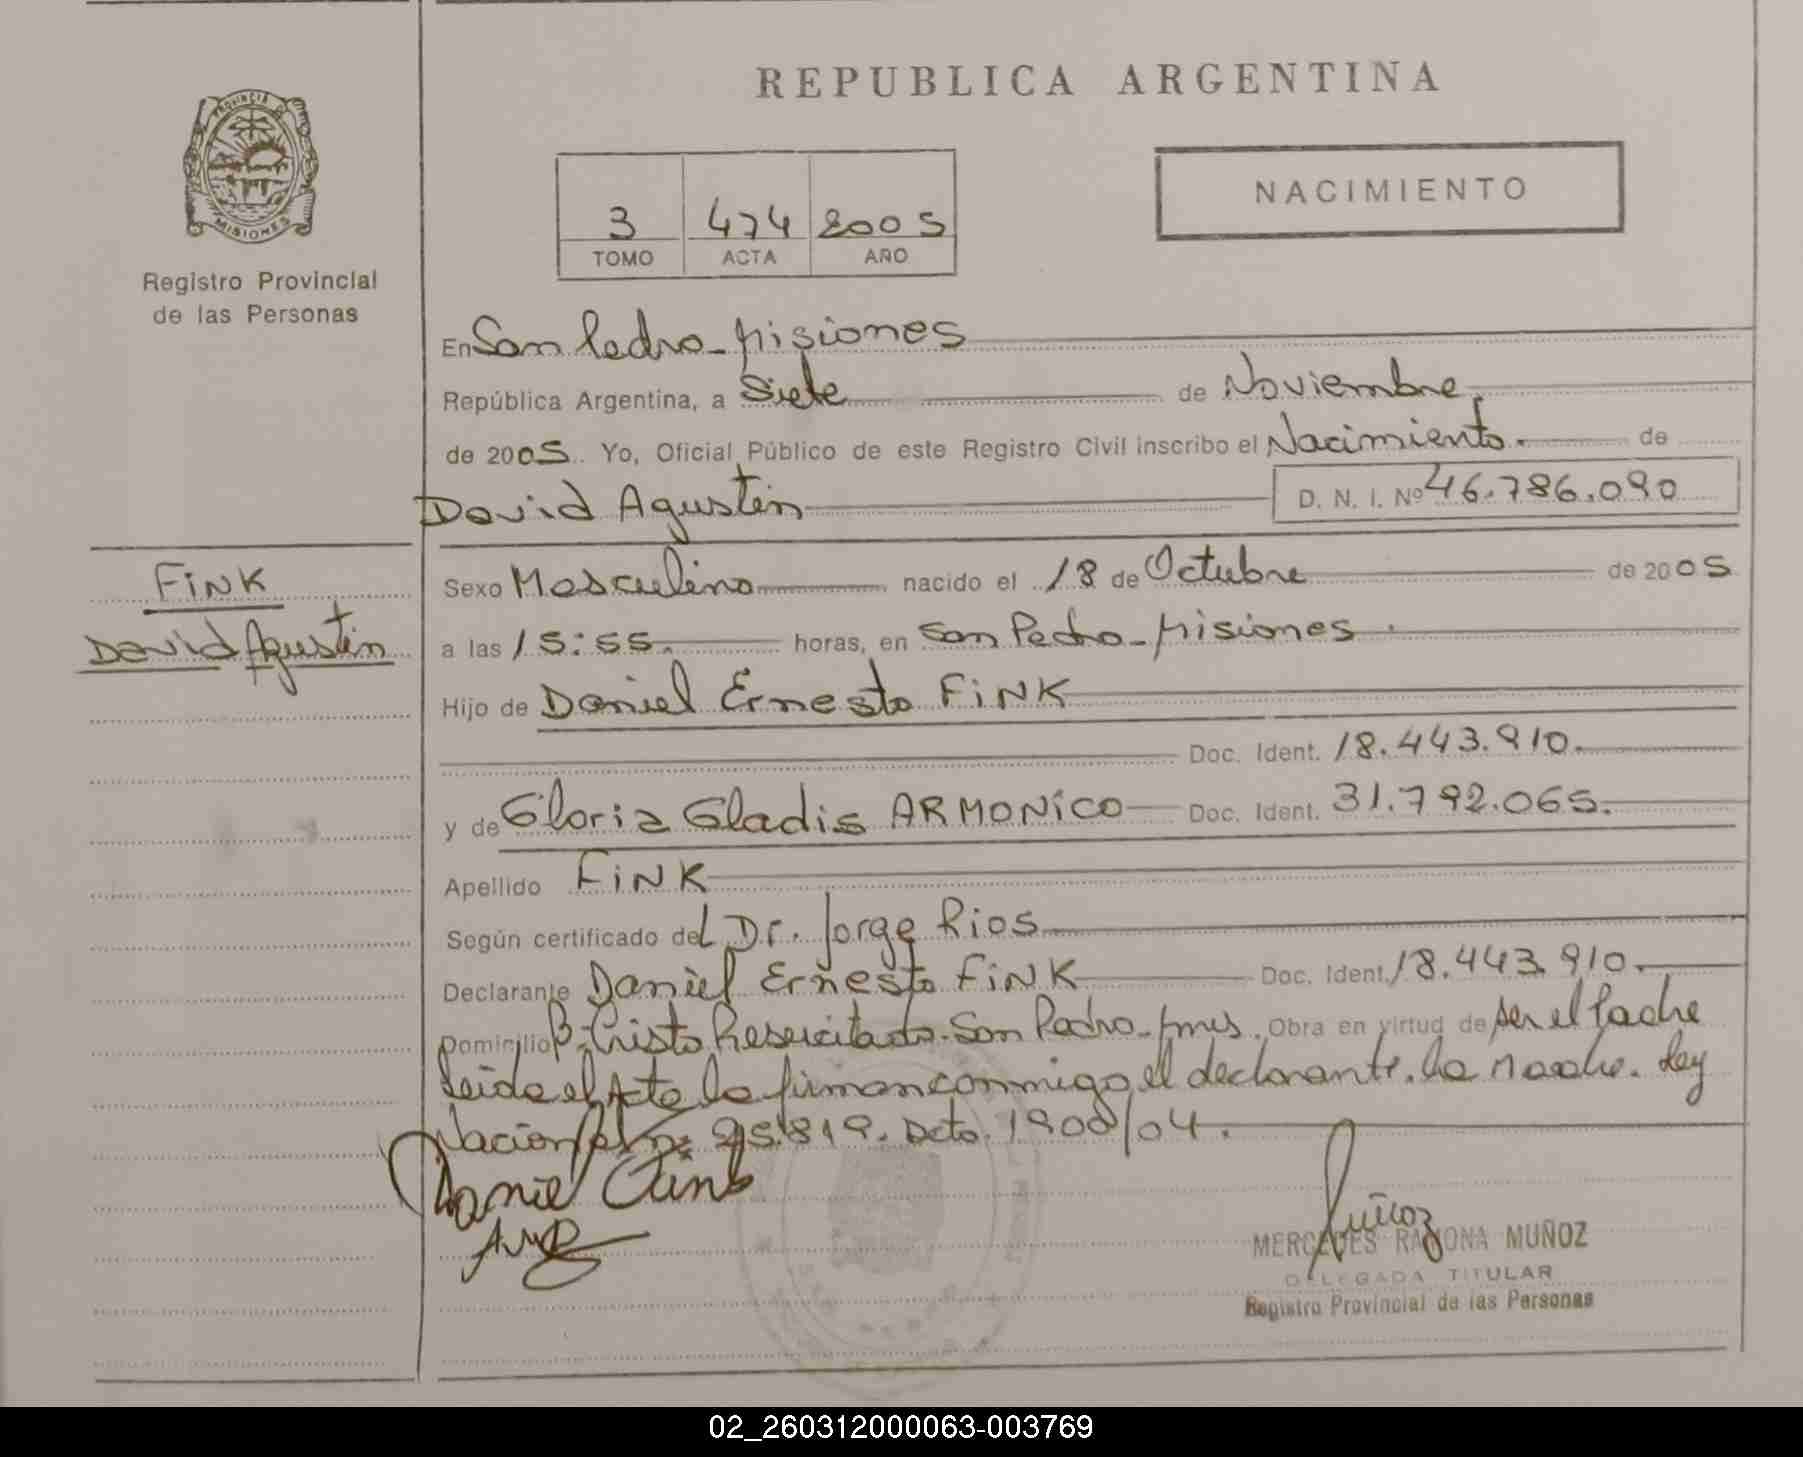 REPUBLICA ARGENTINA
PROVINCIA DE
MISIONES
Registro Provincial
de las Personas
NACIMIENTO
3 474 2005
TOMO ACTA AÑO
En San Pedro - Misiones
República Argentina, a Siete de Noviembre
de 2005. Yo, Oficial Público de este Registro Civil inscribo el Nacimiento. de
David Agustin D. N. I. Nº 46.786.090
FiNK
David Agustin
Sexo Masculino nacido el 18 de Octubre de 2005
a las 15:55. horas, en San Pedro - Misiones.
Hijo de Daniel Ernesto FiNK
Doc. Ident. 18.443.910.
y de Gloria Gladis ARMONiCO Doc. Ident. 31.792.065.
Apellido FiNK
Según certificado del Dr. Jorge Rios
Declarante Daniel Ernesto FiNK Doc. Ident. 18.443.910.
Domicilio Bº Cristo Resucitado. San Pedro - Mnes. Obra en virtud de ser el Padre
Leida el Acta la firman conmigo el declarante. la Madre. Ley
Nacional nº 25.819. Dcto. 1900/04.
Daniel Fink
Muñoz
MERCEDES RAMONA MUÑOZ
DELEGADA TITULAR
Registro Provincial de las Personas
02_260312000063-003769